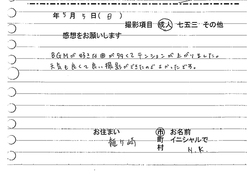 年 5月 5日(日)
撮影項目 成人 七五三 その他
感想をお願いします
BGMが好きな曲が多くてテンションが上がりました。
天気も良くて良い撮影ができたのでよかったです。
お住まい 市町村 お名前
龍ヶ崎 イニシャルで
N.K.